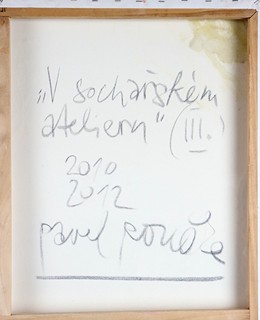 „V sochařském
atelieru" (III.)
2010
2012
pavel